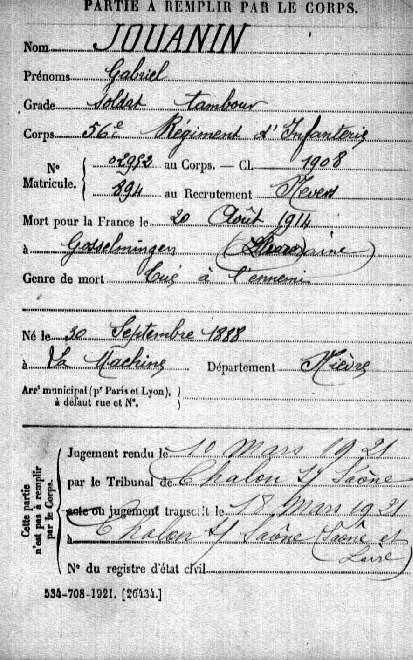 PARTIE À REMPLIR PAR LE CORPS.
Nom JOUANIN
Prénoms Gabriel
Grade Soldat tambour
Corps 56e Régiment d'Infanterie
No Matricule. { 02952 au Corps. — Cl. 1908
894 au Recrutement Nevers
Mort pour la France le 20 Août 1914
à Gosselmingen (Lorraine)
Genre de mort Tué à l'ennemi
Né le 30 Septembre 1888
à La Machine Département Nièvre
Arrt municipal (pr Paris et Lyon),
à défaut rue et No.
Cette partie n'est pas à remplir par le Corps.
Jugement rendu le 10 Mars 1921
par le Tribunal de Chalon s/ Saône
acte ou jugement transcrit le 18 Mars 1921
à Chalon s/ Saône (Saône et
Loire)
No du registre d'état civil
534-708-1921. [26434.]